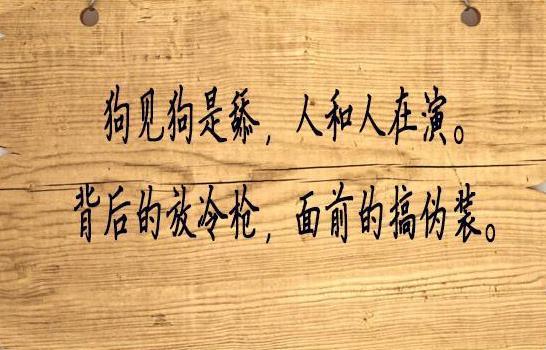 狗见狗是舔，人和人在演。
背后的放冷枪，面前的搞伪装。